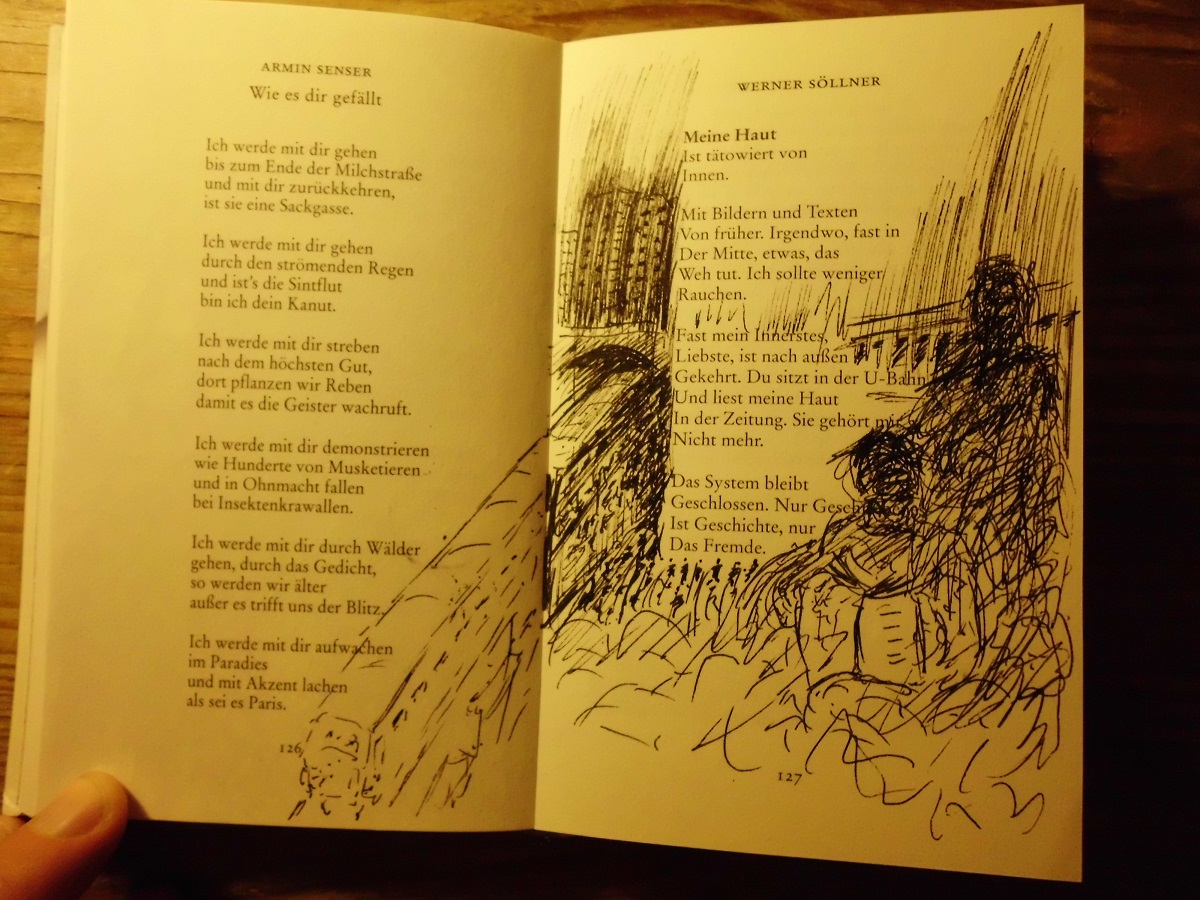 ARMIN SENSER
Wie es dir gefällt
Ich werde mit dir gehen
bis zum Ende der Milchstraße
und mit dir zurückkehren,
ist sie eine Sackgasse.
Ich werde mit dir gehen
durch den strömenden Regen
und ist's die Sintflut
bin ich dein Kanut.
Ich werde mit dir streben
nach dem höchsten Gut,
dort pflanzen wir Reben
damit es die Geister wachruft.
Ich werde mit dir demonstrieren
wie Hunderte von Musketieren
und in Ohnmacht fallen
bei Insektenkrawallen.
Ich werde mit dir durch Wälder
gehen, durch das Gedicht,
so werden wir älter
außer es trifft uns der Blitz.
Ich werde mit dir aufwachen
im Paradies
und mit Akzent lachen
als sei es Paris.
126
WERNER SÖLLNER
Meine Haut
Ist tätowiert von
Innen.
Mit Bildern und Texten
Von früher. Irgendwo, fast in
Der Mitte, etwas, das
Weh tut. Ich sollte weniger
Rauchen.
Fast mein Innerstes,
Liebste, ist nach außen
Gekehrt. Du sitzt in der U-Bahn
Und liest meine Haut
In der Zeitung. Sie gehört mir
Nicht mehr.
Das System bleibt
Geschlossen. Nur
Ist Geschichte, nur
Das Fremde.
127